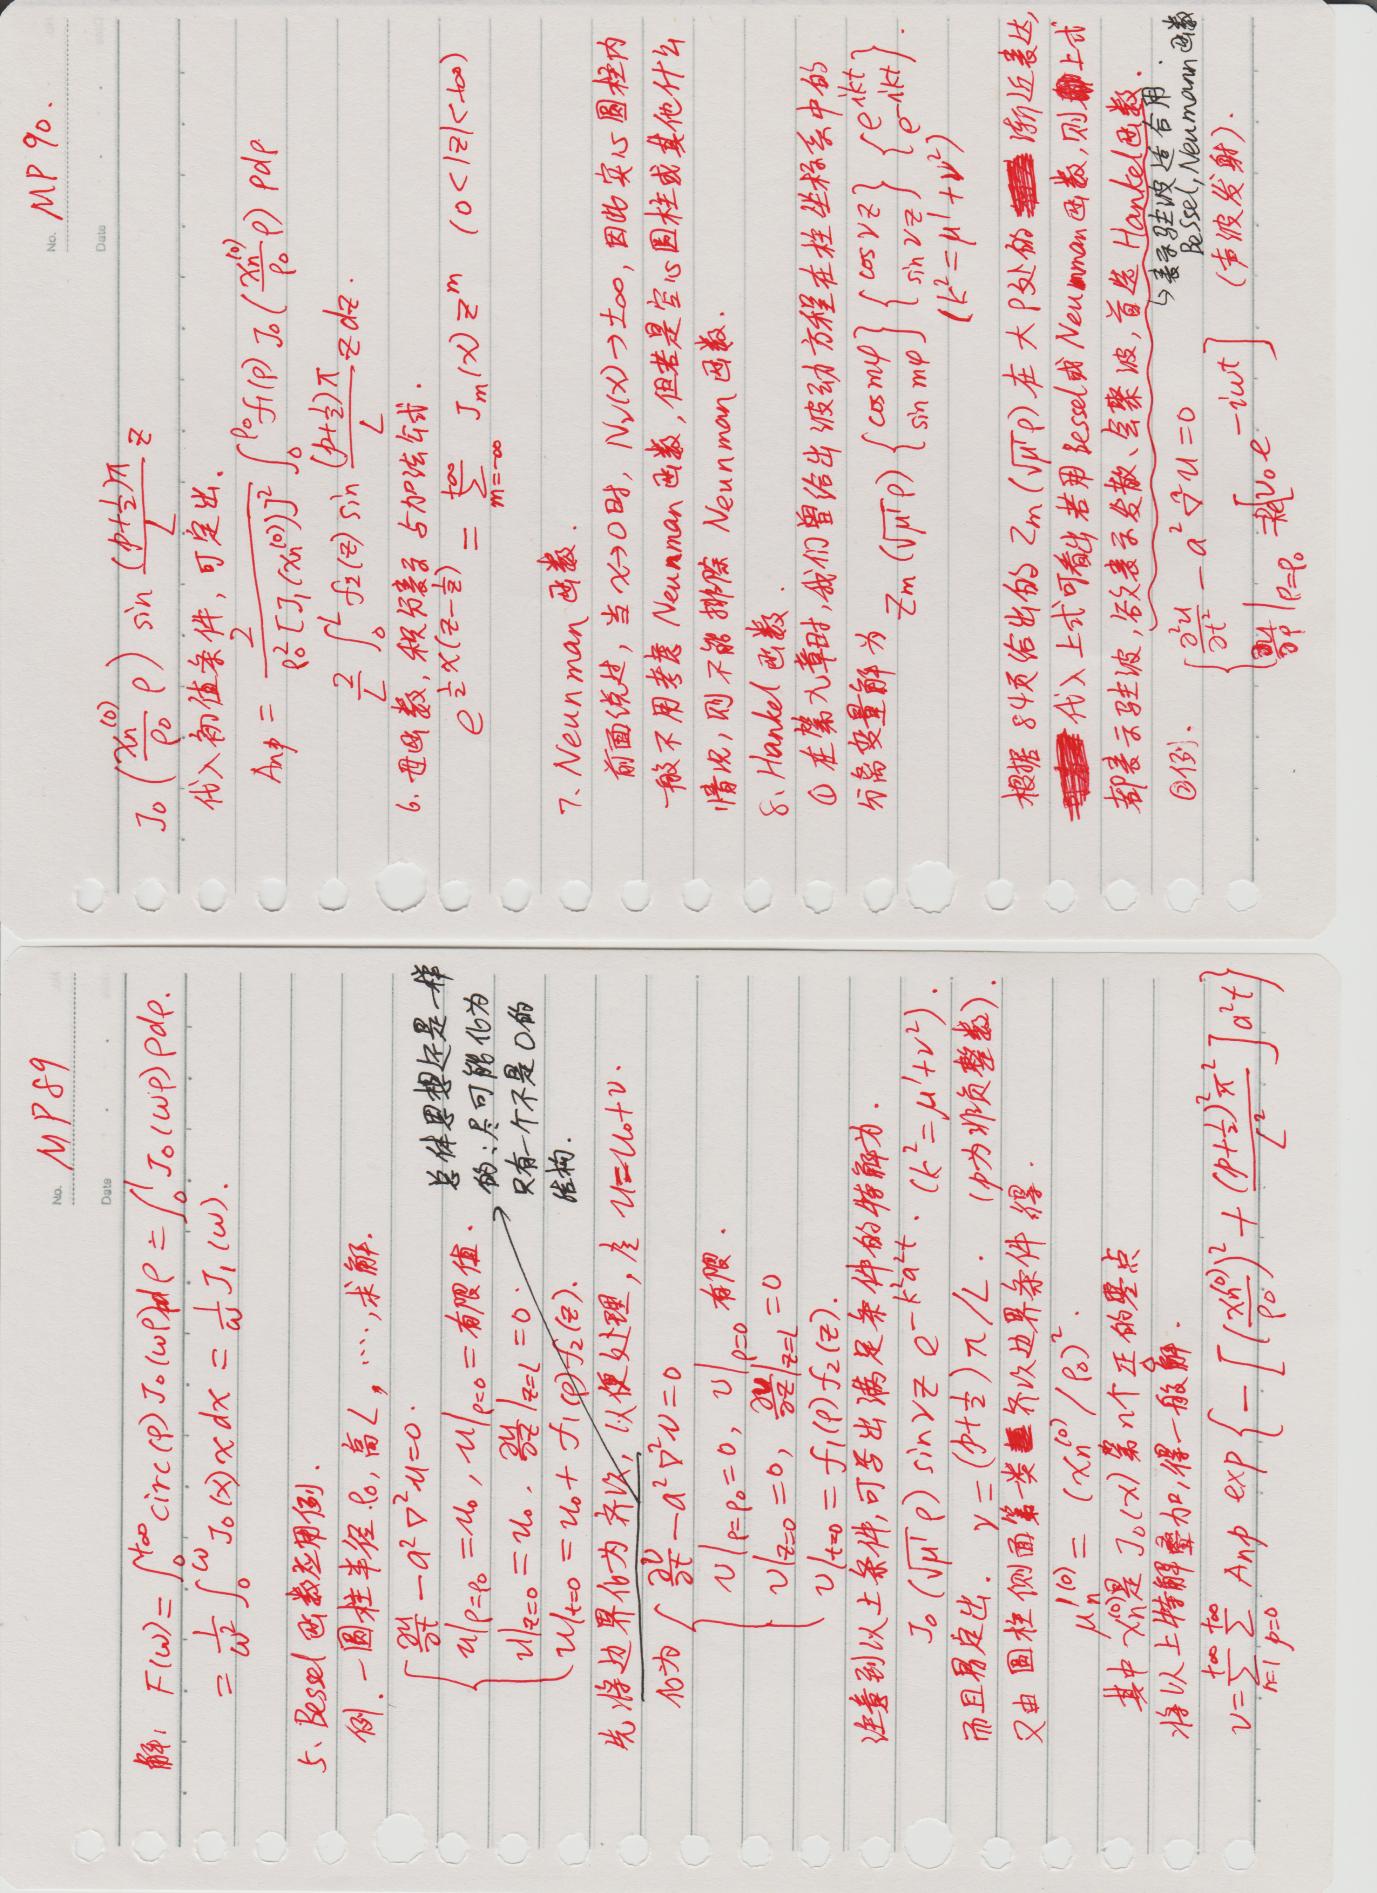 No. MP 89
Date
解: F(ω) = ∫₀^{+∞} circ(ρ) J₀(ωρ) ρdρ = ∫₀¹ J₀(ωρ) ρdρ.
= 1/ω² ∫₀^ω J₀(x) x dx = 1/ω J₁(ω).
5、Bessel 函数应用例.
例. 一圆柱半径 ρ₀, 高L, ⋯, 求解.
∂u/∂t − a²∇²u = 0.
u|ρ=ρ₀ = u₀, u|ρ=0 = 有限值.
u|z=0 = u₀, ∂u/∂z|z=L = 0.
u|t=0 = u₀ + f₁(ρ) f₂(z).
总体思想还是一样
的: 尽可能化为
只有一个不是0的
结构.
先将边界化为齐次, 以便处理, 令 u = u₀+v.
化为 ∂v/∂t − a²∇²v = 0
v|ρ=ρ₀ = 0, v|ρ=0 有限.
v|z=0 = 0, ∂v/∂z|z=L = 0
v|t=0 = f₁(ρ) f₂(z).
注意到以上条件, 可写出满足条件的特解为.
J₀(√μ' ρ) sinνz e^{−k²a²t}. (k² = μ' + ν²).
而且易定出. ν = (p+½)π/L. (p为非负整数).
又由圆柱侧面第一类齐次边界条件得.
μ'ₙ⁽⁰⁾ = (xₙ⁽⁰⁾/ρ₀)².
其中 xₙ⁽⁰⁾是 J₀(x) 第n个正的零点
将以上特解叠加, 得一般解.
v = Σ_{n=1}^{+∞} Σ_{p=0}^{+∞} Anp exp{−[(xₙ⁽⁰⁾/ρ₀)² + (p+½)²π²/L²]a²t}
No. MP 90.
Date
J₀(xₙ⁽⁰⁾/ρ₀ ρ) sin (p+½)π/L z
代入初值条件, 可定出.
Anp = 2/(ρ₀²[J₁(xₙ⁽⁰⁾)]²) ∫₀^{ρ₀} f₁(ρ) J₀(xₙ⁽⁰⁾/ρ₀ ρ) ρdρ
2/L ∫₀^L f₂(z) sin (p+½)π/L z dz.
6. 母函数, 积分表示与加法公式.
e^{½x(z−1/z)} = Σ_{m=−∞}^{+∞} Jm(x) z^m (0<|z|<+∞)
7、Neunman 函数.
前面说过, 当 x→0时, Nν(x)→±∞, 因此实心圆柱内
一般不用考虑 Neunman 函数, 但若是空心圆柱或其他什么
情况, 则不能排除 Neunman 函数.
8、Hankel 函数.
① 在第九章时, 我们曾给出波动方程在柱坐标系中的
分离变量解为 Zm(√μ' ρ) {cosmφ sinmφ} {cosνz sinνz} {e^{ikt} e^{−ikt}}.
(k² = μ' + ν²)
根据84页给出的 Zm(√μ' ρ) 在大ρ处的渐近表达,
代入上式可看出若用 Bessel 或 Neunman 函数, 则上式
都表示驻波, 欲表示发散、会聚波, 首选 Hankel 函数.
↳ 表示驻波适合用.
Bessel, Neumann 函数
②例. ∂²u/∂t² − a²∇²u = 0
∂u/∂ρ|ρ=ρ₀ = Re[v₀ e^{−iωt}] (声波发射).